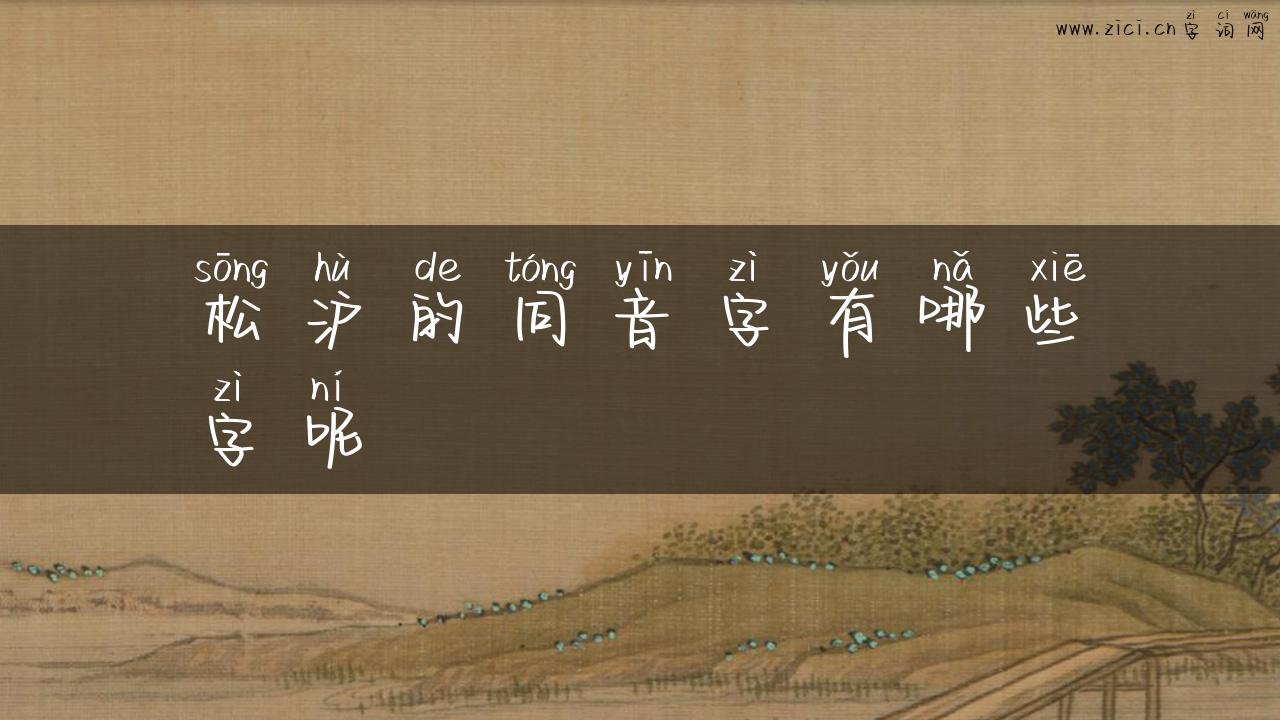 zì cí wǎng
www.zici.cn字词网
sōng hù de tóng yīn zì yǒu nǎ xiē
松沪的同音字有哪些
zì ní
字呢